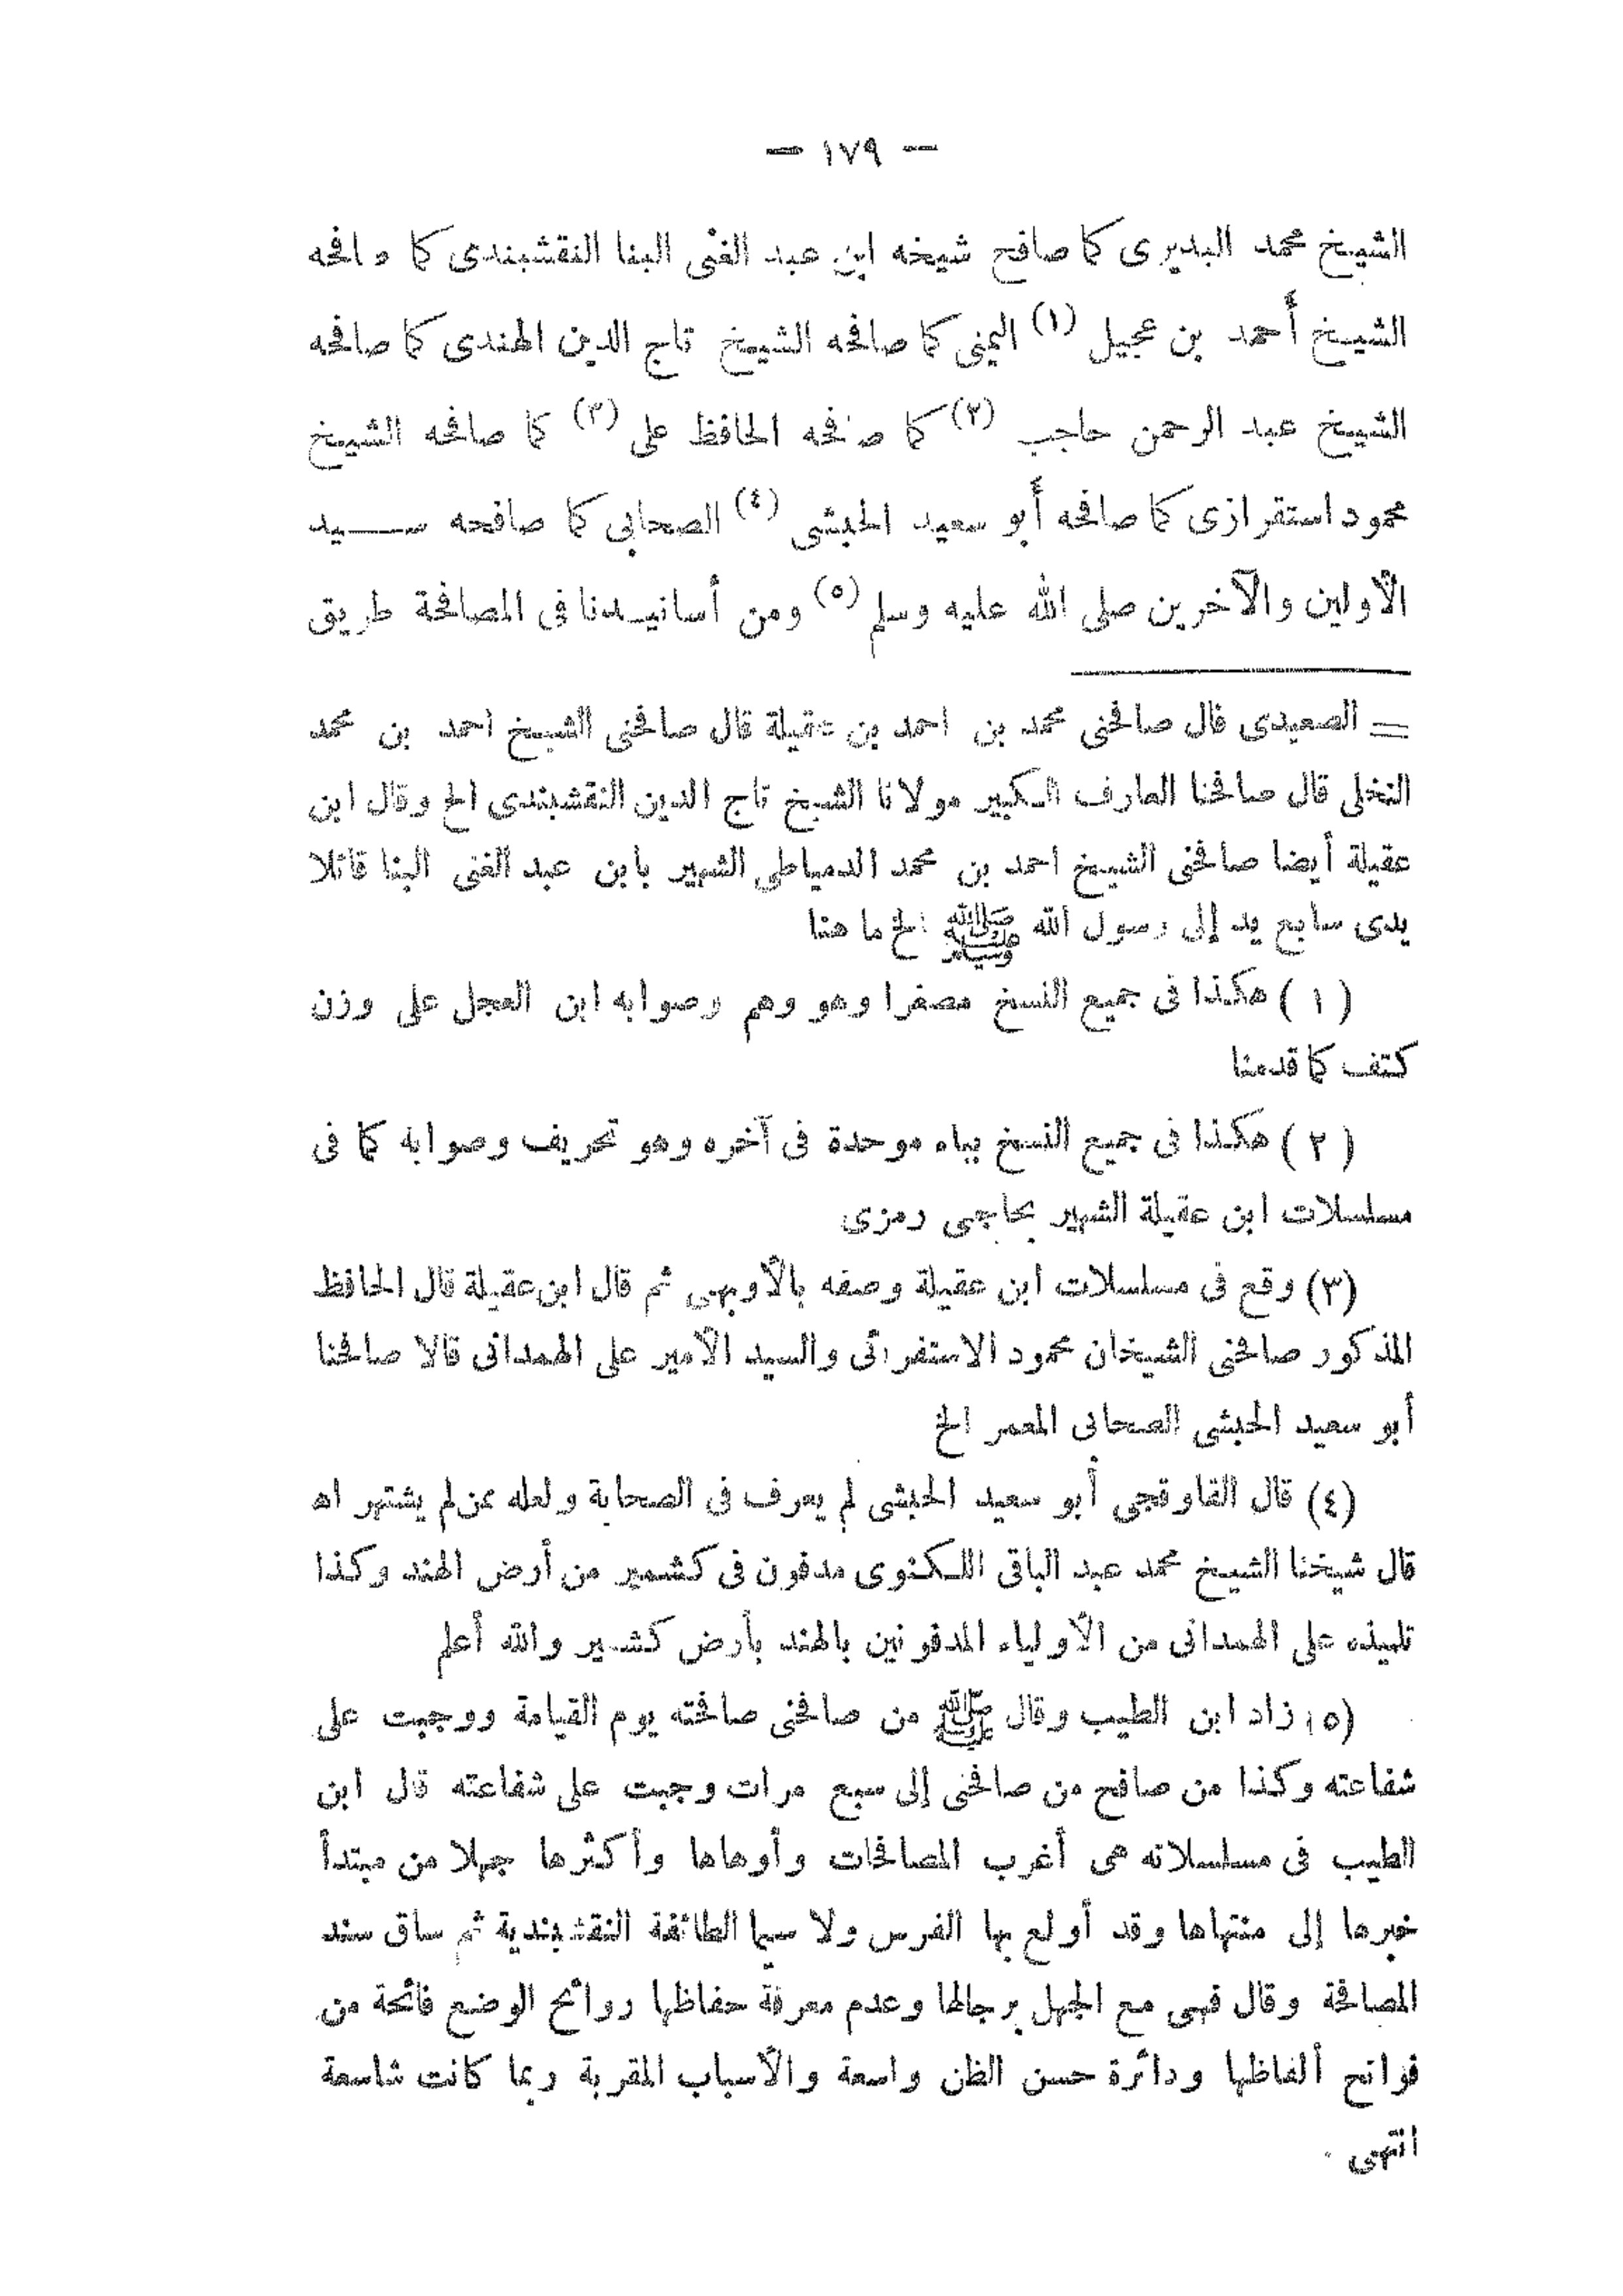 — ١٧٩ —
الشيخ محمد البديرى كما صافح شيخه ابن عبد الغنى البنا النقشبندى كما صافحه
الشيخ أحمد بن عجيل (١) اليمنى كما صافحه الشيخ تاج الدين الهندى كما صافحه
الشيخ عبد الرحمن حاجب (٢) كما صافحه الحافظ على (٣) كما صافحه الشيخ
محمود استقرازى كما صافحه أبو سعيد الحبشى (٤) الصحابى كما صافحه سيد
الأولين والآخرين صلى الله عليه وسلم (٥) ومن أسانيدنا فى المصافحة طريق
= الصعيدى قال صافحنى محمد بن احمد بن عقيلة قال صافحنى الشيخ احمد بن محمد
النخلى قال صافحنا العارف الكبير مولانا الشيخ تاج الدين النقشبندى الخ وقال ابن
عقيلة أيضا صافحنى الشيخ احمد بن محمد الدمياطى الشهير بابن عبد الغنى البنا قائلا
يدى سابع يد إلى رسول الله ﷺ الخ ما هنا
(١) هكذا فى جميع النسخ مصغرا وهو وهم وصوابه ابن العجل على وزن
كتف كما قدمنا
(٢) هكذا فى جميع النسخ بباء موحدة فى آخره وهو تحريف وصوابه كما فى
مسلسلات ابن عقيلة الشهير بحاجى رمزى
(٣) وقع فى مسلسلات ابن عقيلة وصفه بالأوبهى ثم قال ابن عقيلة قال الحافظ
المذكور صافحنى الشيخان محمود الاستفرائى والسيد الأمير على الهمدانى قالا صافحنا
أبو سعيد الحبشى الصحابى المعمر الخ
(٤) قال القاوقجى أبو سعيد الحبشى لم يعرف فى الصحابة ولعله ممن لم يشتهر اه
قال شيخنا الشيخ محمد عبد الباقى اللكنوى مدفون فى كشمير من أرض الهند وكذا
تلميذه على الهمدانى من الأولياء المدفونين بالهند بأرض كشمير والله أعلم
(٥) زاد ابن الطيب وقال ﷺ من صافحنى صافحته يوم القيامة ووجبت على
شفاعته وكذا من صافح من صافحنى إلى سبع مرات وجبت على شفاعته قال ابن
الطيب فى مسلسلاته هى أغرب المصافحات وأوهاها وأكثرها جهلا من مبتدأ
خبرها إلى منتهاها وقد أولع بها الفرس ولا سيما الطائفة النقشبندية ثم ساق سند
المصافحة وقال فهى مع الجهل برجالها وعدم معرفة حفاظها روائح الوضع فائحة من
فواتح ألفاظها ودائرة حسن الظن واسعة والأسباب المقربة ربما كانت شاسعة
انتهى .